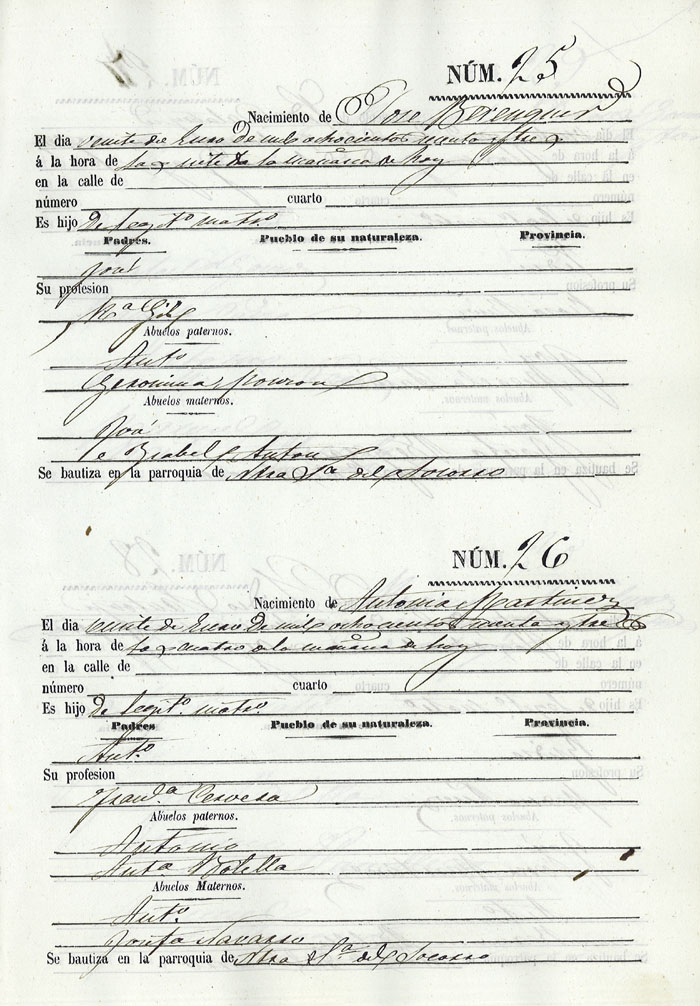 NÚM. 25
Nacimiento de Jose Berenguer
El dia veinte de Enero de mil ochocientos y tres
á la hora de las siete de la mañana de hoy
en la calle de
número cuarto
Es hijo de legit.º matr.º
Padres. Pueblo de su naturaleza. Provincia.
José
Su profesion
Abuelos paternos.
Ant.º
Geronima
Abuelos maternos.
José
e Ysabel Anton
Se bautiza en la parroquia de Ntra Sra del Socorro
NÚM. 26
Nacimiento de Antonia Martinez
El dia veinte de Enero de mil ochocientos y tres
á la hora de las cuatro de la mañana de hoy
en la calle de
número cuarto
Es hijo de legit.º matr.º
Padres Pueblo de su naturaleza. Provincia.
Ant.º
Su profesion
Fran.ca Cervera
Abuelos paternos.
Antonio
Anta Botella
Abuelos Maternos.
Ant.º
Josefa Navarro
Se bautiza en la parroquia de Ntra Sra del Socorro